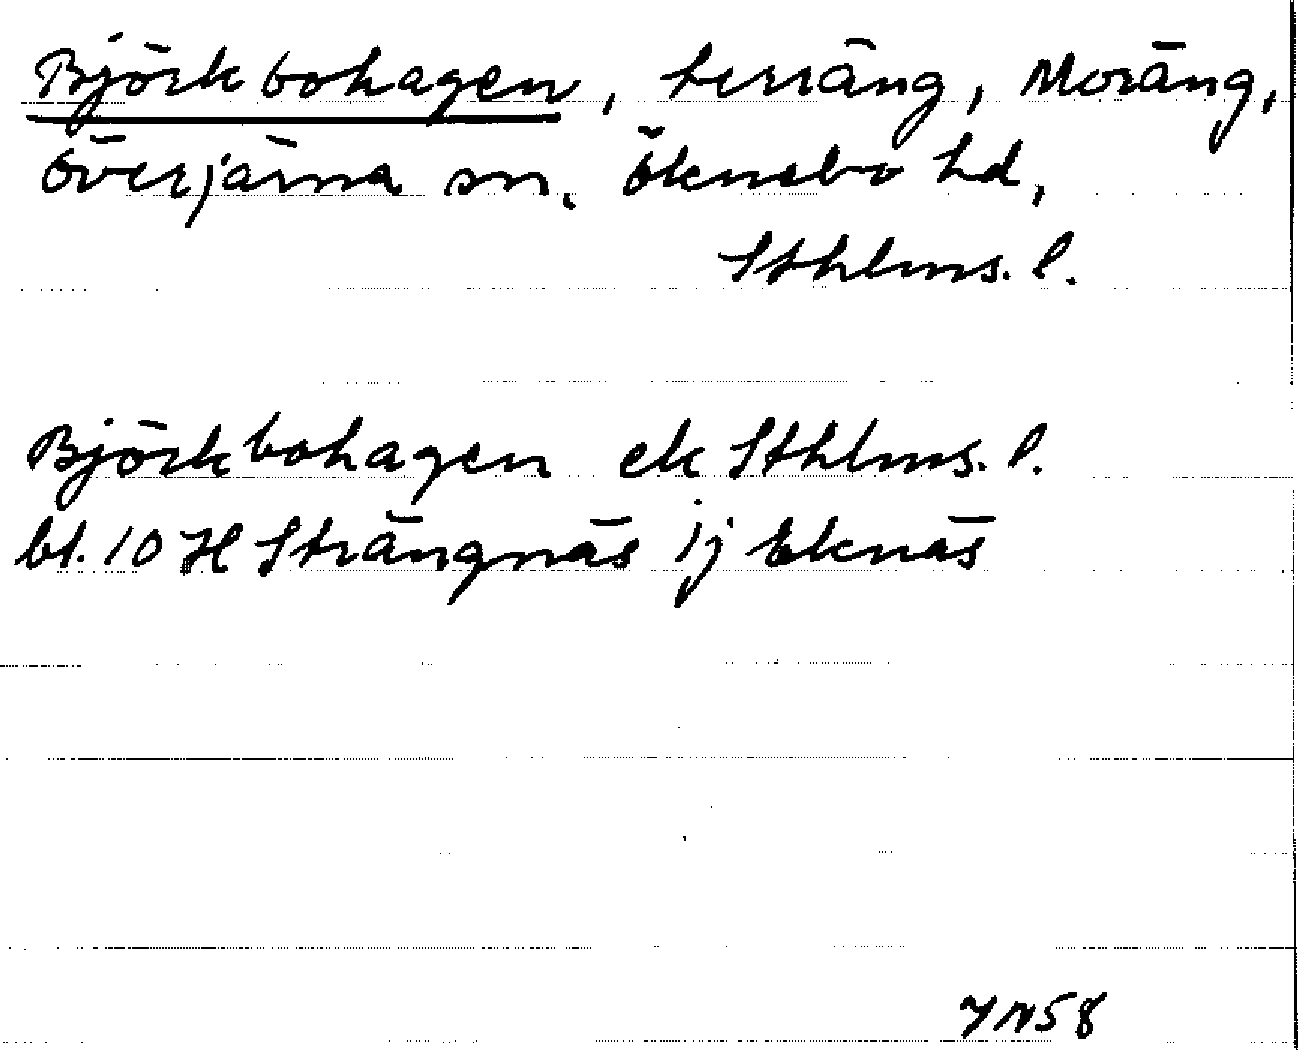 Björkbohagen, terräng, Moräng,
Överjärna sn. Öknebo hd,
Sthlms. l.
Björkbohagen ek Sthlms. l.
bl. 10 H Strängnäs ij Eknäs